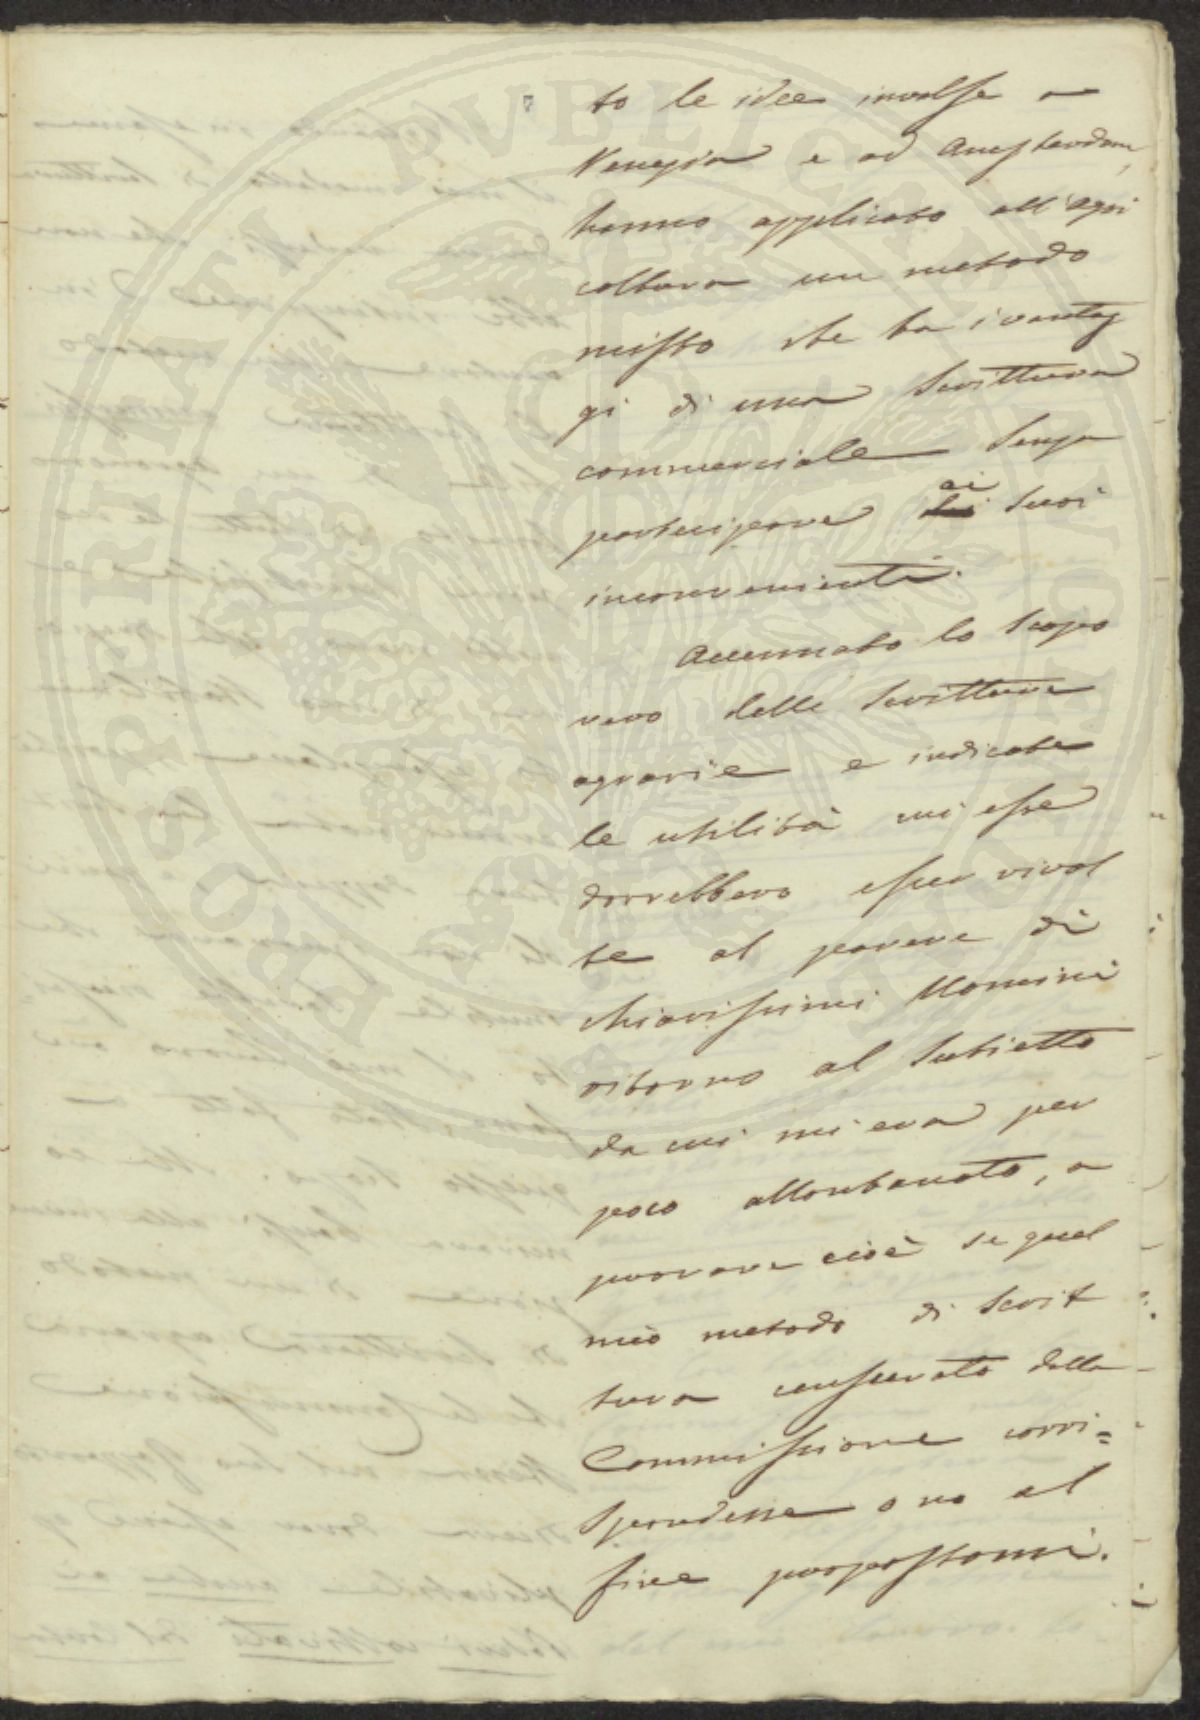 to le idee invalse a
Venezia e ad Amesterdam,
hanno applicato all'agri
coltura un metodo
misto che ha i vantag
gi di una scrittura
commerciale senza
partecipare ai suoi
inconvenienti.
Accennato lo scopo
vero delle scritture
agrarie e indicate
le utilità cui esse
dovrebbero esser rivol
te al parere di
chiarissimi Uomini
ritorno al subietto
da cui mi era per
poco allontanato, a
provare cioè se quel
mio metodo di scrit
tura censurato dalla
Commissione corri=
spondesse o no al
fine propostomi.
PROSPERITATI PUBLICAE AUGENDAE